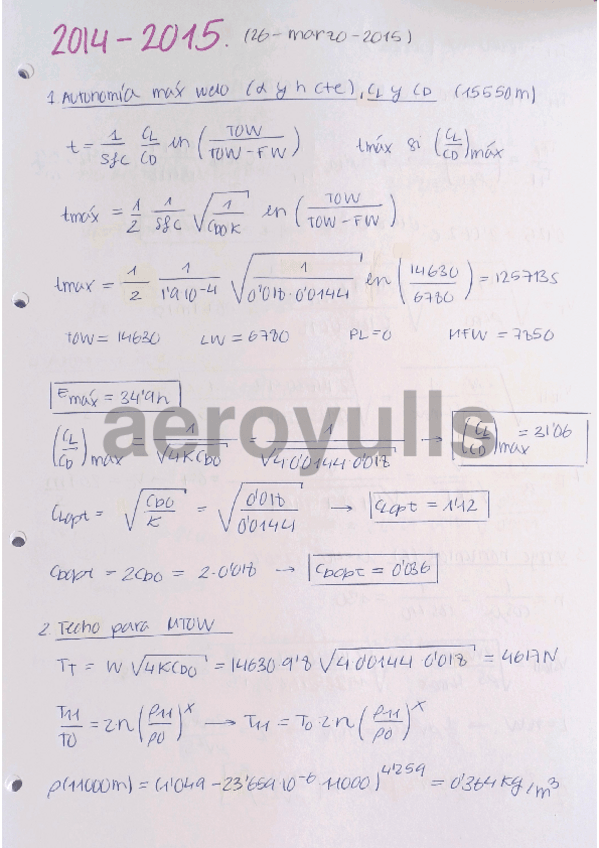 2014-2015. (26-marzo-2015)
1. Autonomía máx vuelo (α y h cte), CL y CD (15550m)
t = 1/sfc CL/CD ln (TOW/TOW-FW) tmáx si (CL/CD)máx
tmáx = 1/2 1/sfc √(1/CD0K) ln (TOW/TOW-FW)
tmax = 1/2 1/1'9 10^-4 √(1/0'018·0'0144) ln (14630/6780) = 125713s
TOW = 14630 LW = 6780 PL=0 MFW = 7850
Emáx = 34'9h
aeroyulls
(CL/CD)max = 1/√4KCD0 = 1/√4·0'0144·0'018 → (CL/CD)max = 31'06
CLopt = √(CD0/K) = √(0'018/0'0144) → CLopt = 1'12
CDopt = 2CD0 = 2·0'018 → CDopt = 0'036
2. Techo para MTOW
TT = W √4KCD0 = 14630·9'8 √4·0'0144·0'018 = 4617N
T11/T0 = 2n (ρ11/ρ0)^x → T11 = T0·2n (ρ11/ρ0)^x
ρ(11000m) = (1'049 - 23'659·10^-6·11000)^4'259 = 0'364 kg/m³